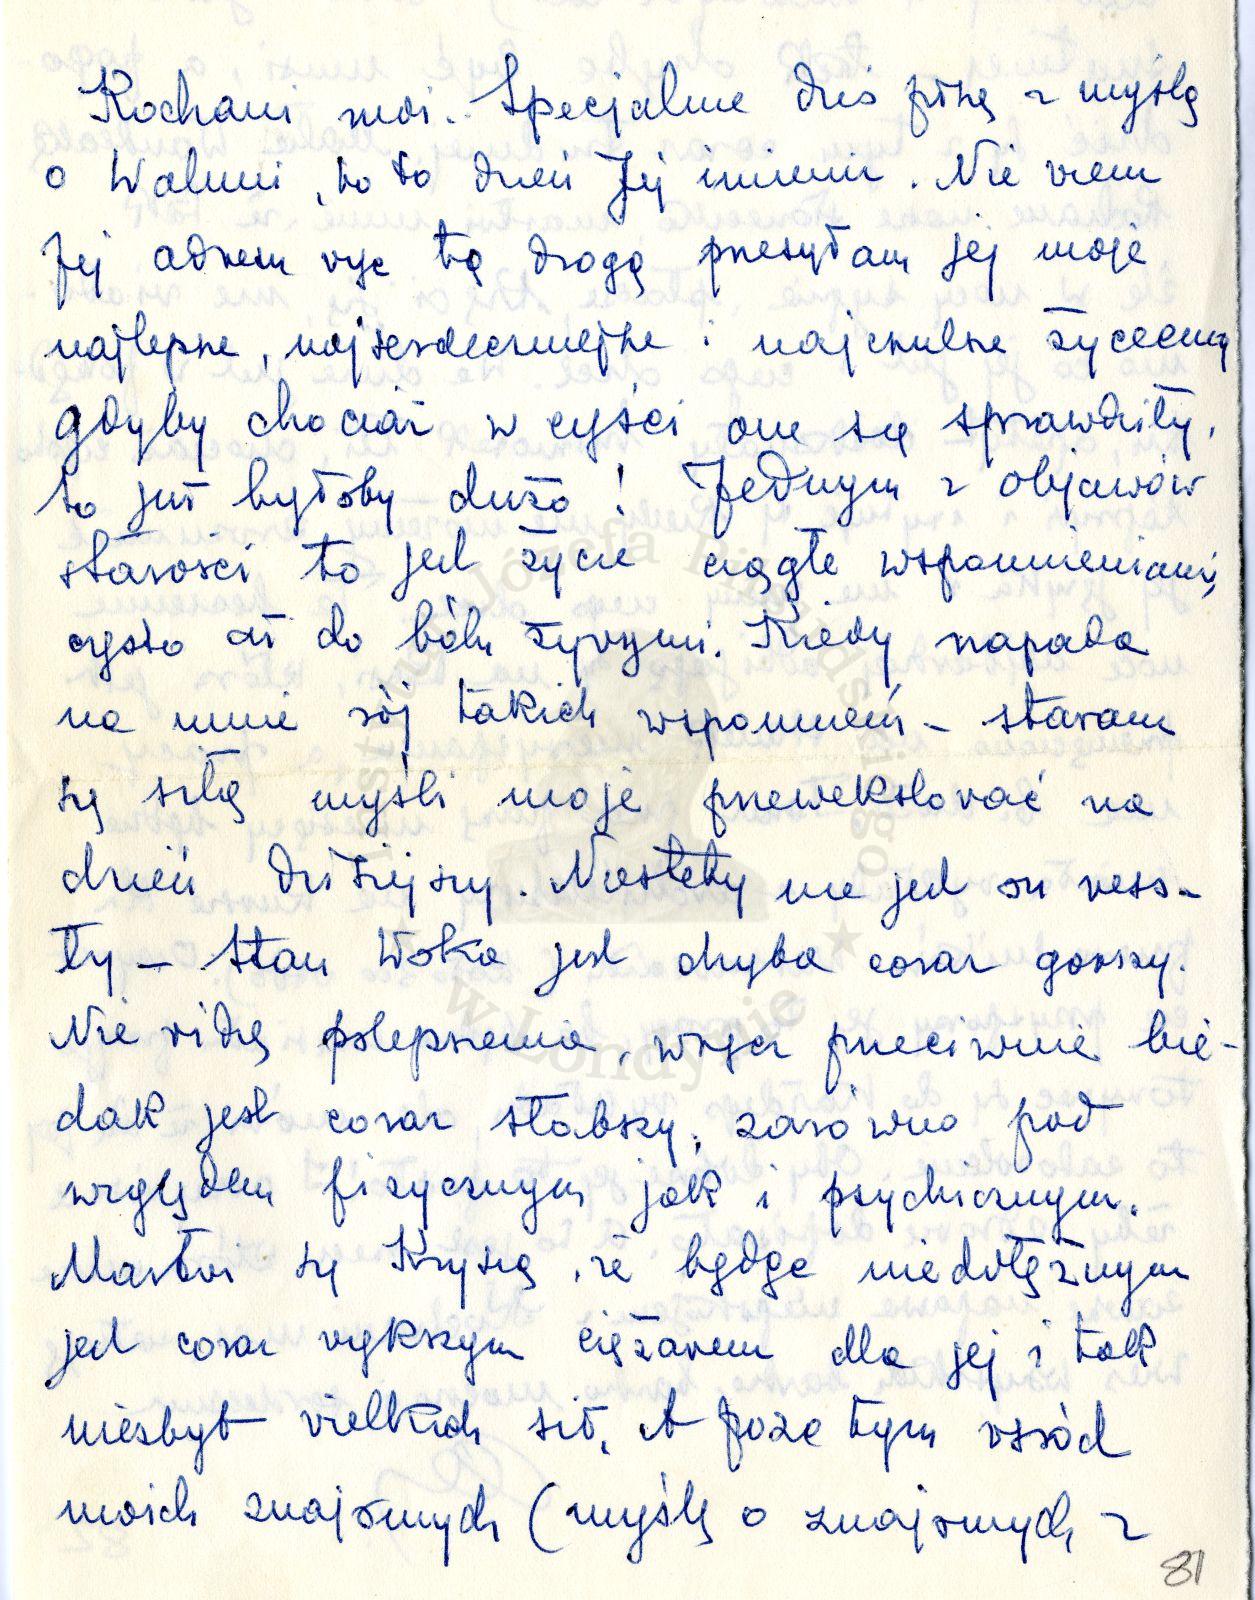 Kochani moi. Specjalnie dziś piszę z myślą
o Waluni, bo to dzień Jej imienin. Nie wiem
Jej adresu więc tą drogą przesyłam jej moje
najlepsze, najserdeczniejsze i najczulsze życzenia
gdyby chociaż w części one się sprawdziły,
to już byłoby dużo! Jednym z objawów
starości to jest życie ciągłe wspomnieniami,
często aż do bólu żywymi. Kiedy napada
na mnie rój takich wspomnień – staram
się siłą myśli moje przewekslować na
dzień dzisiejszy. Niestety nie jest on weso-
ły – stan Woka jest chyba coraz gorszy.
Nie widzę polepszenia, wręcz przeciwnie bie-
dak jest coraz słabszy, zarówno pod
względem fizycznym jak i psychicznym.
Martwi się Krysią, że będąc niedołężnym
jest coraz większym ciężarem dla jej i tak
niezbyt wielkich sił. A poza tym wśród
moich znajomych (myślę o znajomych z
81
Instytut Józefa Piłsudskiego
w Londynie